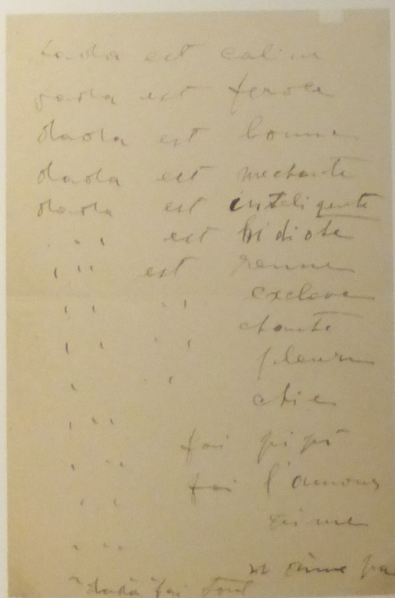 dada est caline
dada est feroce
dada est bonne
dada est mechante
dada est inteligente
" " est hidiote
" " est
" " " exclave
" " " chante
" " pleure
"
" "
" " fai pipi
" " fai l'amour
" "
" " n'aime pas
"dada" fai tout